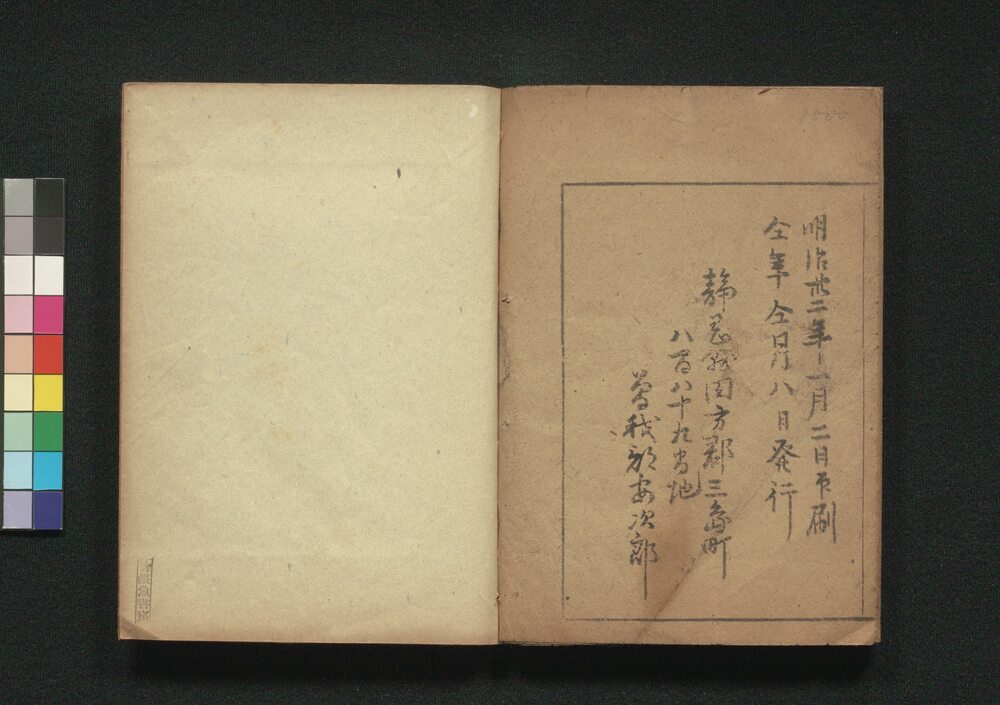 明治廿二年十一月二日印刷
仝年仝月八日発行
静岡縣田方郡三島町
八百八十九番地
曽我部安次郎